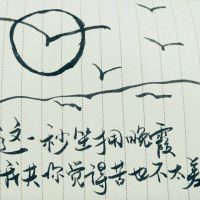 这一秒坐拥晚霞
我共你觉得苦也不太差